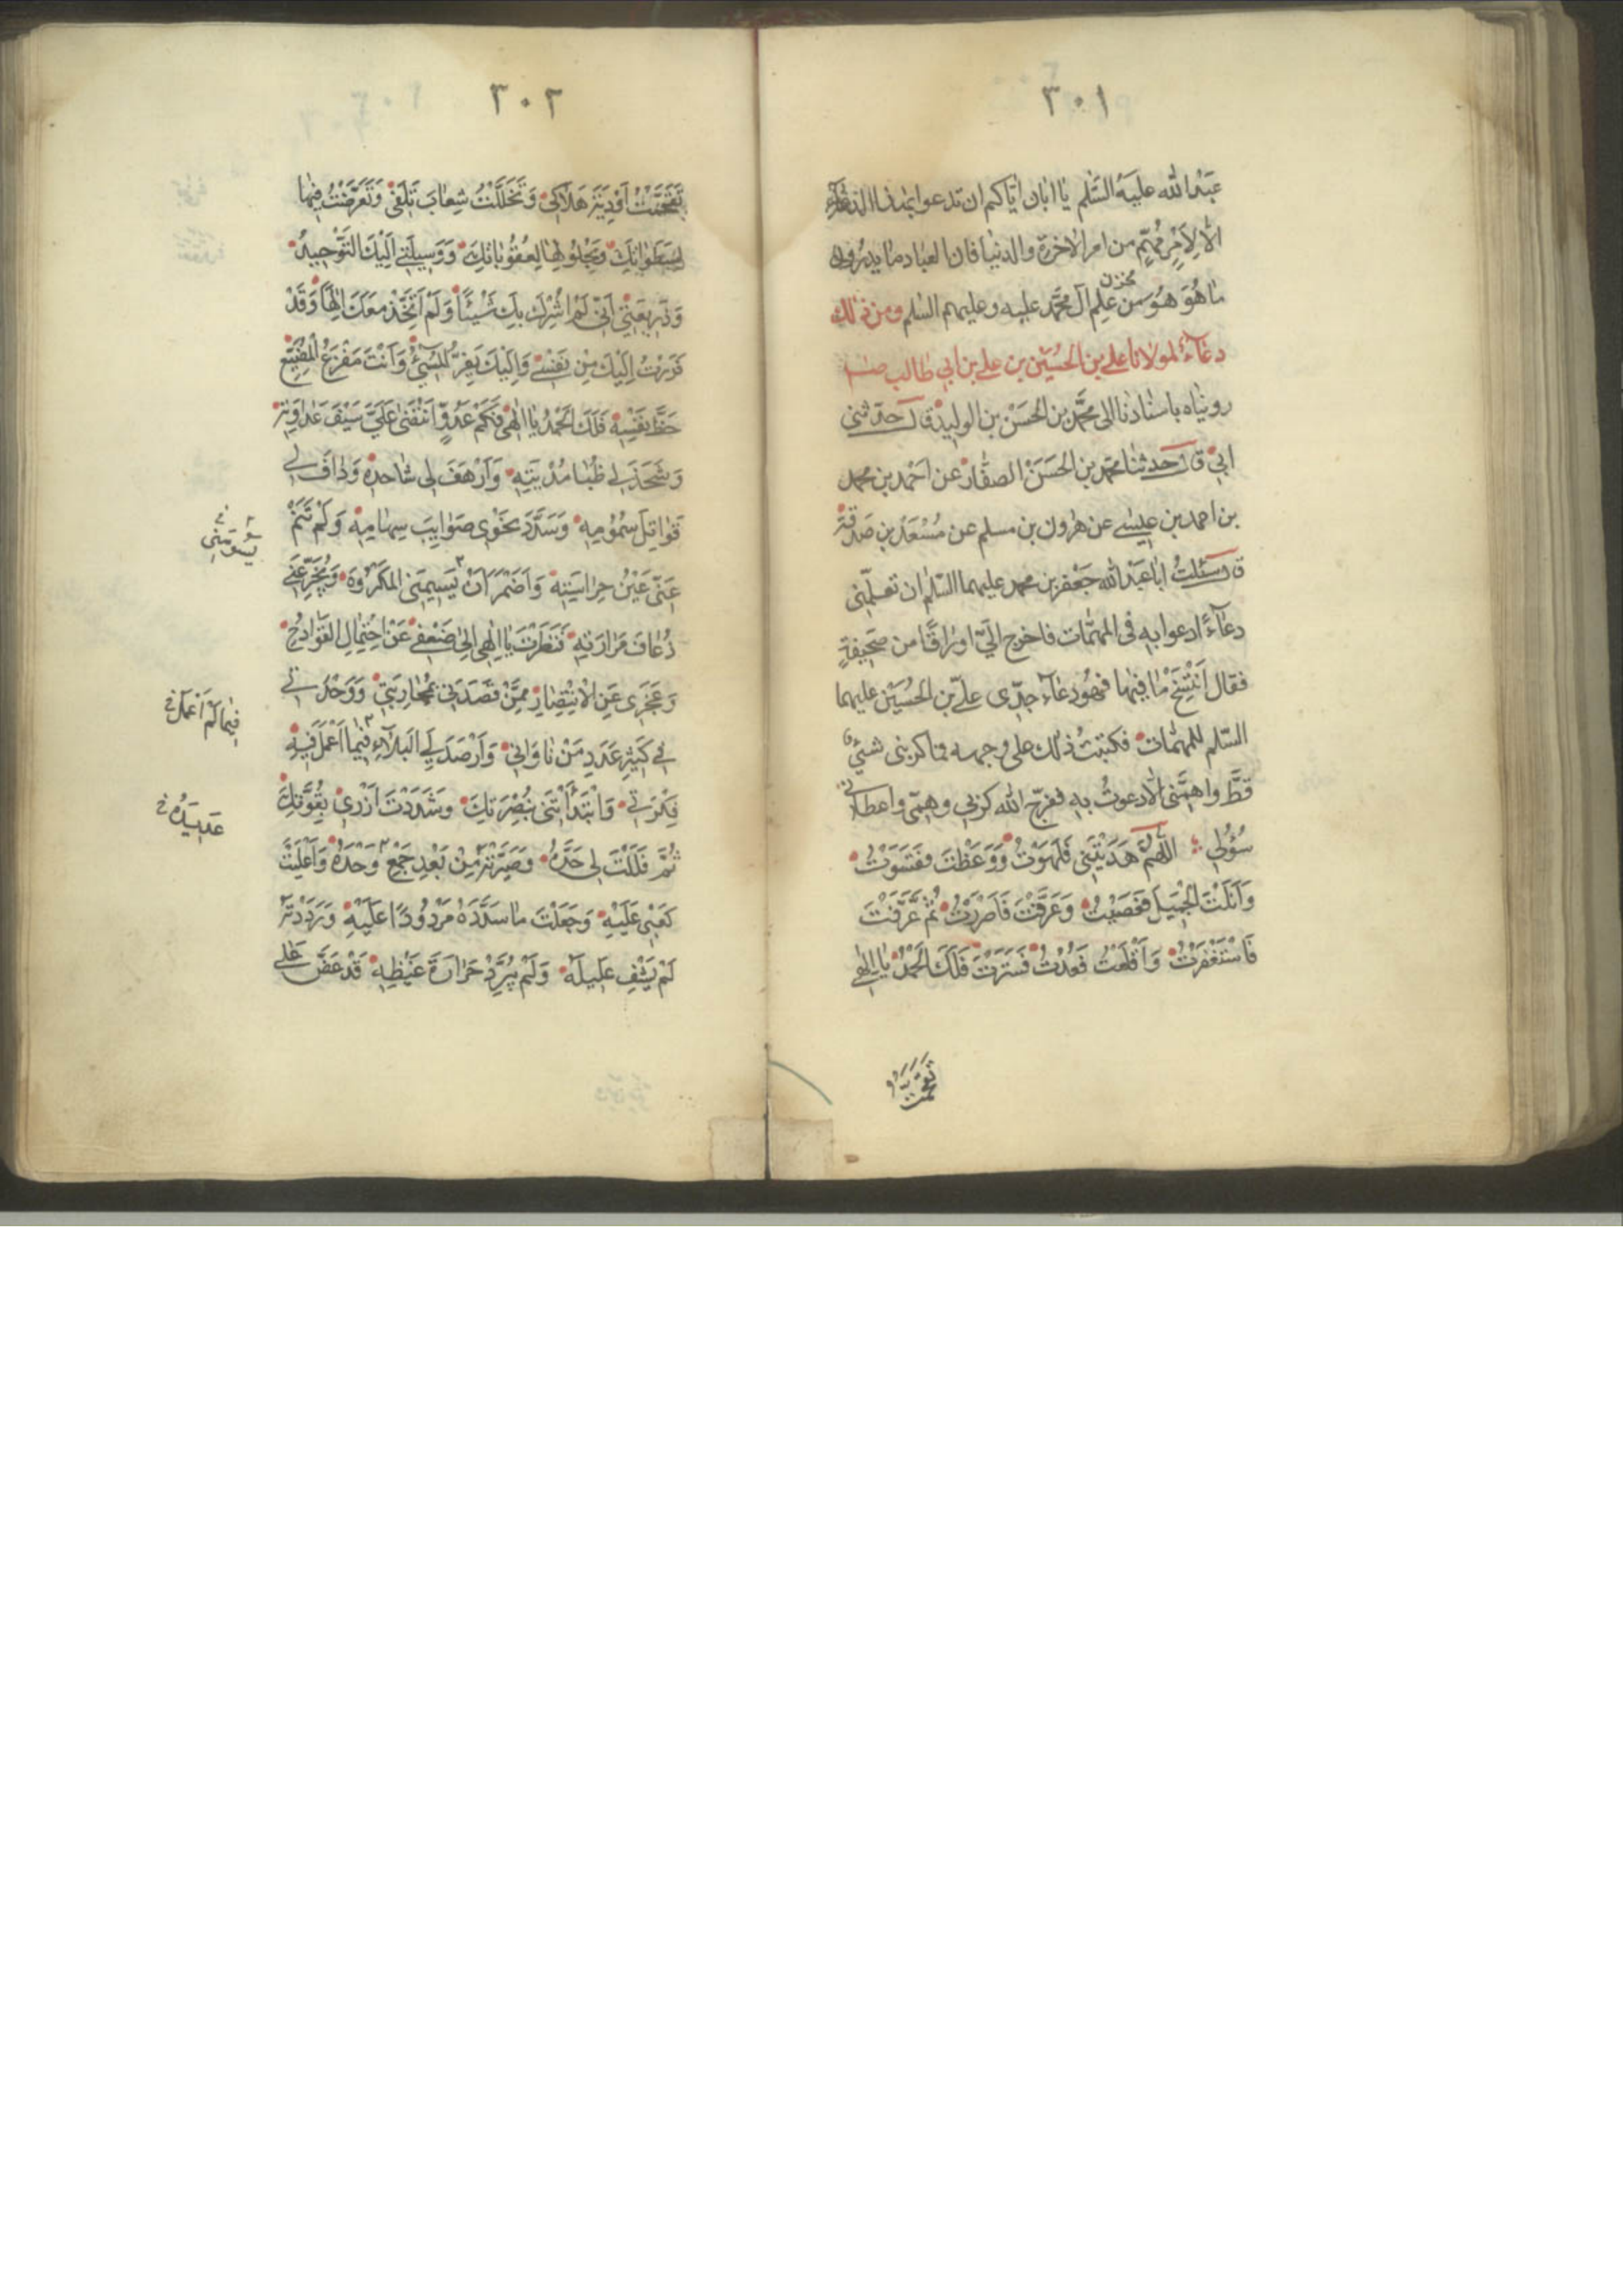 ٣٠١
عَبْدالله عليهِ السَّلم يا ابان ايّاكم ان تدعوا بهذا الدعآء
الّا لِاَمْرٍ مُهِمّ من امر الاخرة والدنيا فان العباد ما يدرون
ما هُوَ هُوَ من مخزون علم آل محمّد عليه وعليهم السّلم ومن ذلك
دعآءٌ لمولانا علي بن الحُسَيْن بن علي بن ابي طالب
رويناه باسنادنا الى محمّد بن الحَسَنْ بن الوليد قال حدّثنى
ابى قال حدثنا محمّد بن الحسَنْ الصفّار عن احْمد بن محمد
بن احمد بن عيسى عن هرون بن مسلم عن مُسْعَدَة بن صَدقة
قال سَئلتُ ابا عَبْد الله جَعْفر بن محمد عليهما السّلم ان تعلّمنى
دعآءً ادعوا به فى المهمّات فاخرج الَيّ اوراقًا من صَحيفةٍ
فقال اَنتسِخْ ما فيها فهُو دعآء جدّى عليّ بن الحُسَيْن عليهما
السّلم للمهمّات فكتبتُ ذلك على وجهه فما كربنى شئٌ
قطُّ واهمَّنى الّا دعوتُ بهِ ففرّج الله كربي وهمّى واعطانى
سُؤلي اللّهُمَّ هَدَيْتَنِي فَلَهَوْتُ وَوَعَظْتَ فَقَسَوْتُ
وَاَنَلْتَ الْجَميلَ فَعَصَيْتُ وَعَرَّفْتَ فَاَصْرَرْتُ ثُمَّ عَرَّفْتَ
فَاسْتَغْفَرْتُ وَاَقْلَعْتُ فَعُدْتُ فَسَتَرْتَ فَلَكَ الْحَمْدُ يا اِلٰهى
تقحّمت
٣٠٢
تَقَحَّمْتُ اَوْدِيَةَ هَلاكى وَتَخَلَّلْتُ شِعابَ تَلَفى وَتَعَرَّضْتُ فيها
لِسَطَواتِكَ وَبِحُلُولِها لِعُقُوباتِكَ وَوَسيلَتى اِلَيْكَ التَّوْحيدُ
وَذَريعَتى اَنّى لَمْ اُشْرِكْ بِكَ شَيْئًا وَلَمْ اَتَّخِذْ مَعَكَ اِلٰهًا وَقَدْ
فَرَرْتُ اِلَيْكَ مِنْ نَفْسى وَاِلَيْكَ يَفِرُّ الْمُسيئُ وَاَنْتَ مَفْزَعُ الْمُضَيِّعِ
حَظَّ نَفْسِهِ فَلَكَ الْحَمْدُ يا اِلٰهى فَكَمْ مِنْ عَدُوٍّ انْتَضى عَلَىَّ سَيْفَ عَداوَتِهِ
وَشَحَذَ لى ظُبَا مُدْيَتِهِ وَاَرْهَفَ لى شَا حَدِّهِ وَدافَ لى
قَواتِلَ سُمُومِهِ وَسَدَّدَ نَحْوى صَوايِبَ سِهامِهِ وَلَمْ تَنَمْ
عَنّى عَيْنُ حِراسَتِهِ وَاَضْمَرَ اَنْ يَسيمَنى الْمَكْرُوهَ وَيُجَرِّعَنى
ذُعافَ مَرارَتِهِ فَنَظَرْتَ يا اِلٰهى اِلى ضَعْفى عَنْ احْتِمالِ الْفَوادِحِ
وَعَجْزى عَنِ الْاِنْتِصارِ مِمَّنْ قَصَدَنى بِمُحارَبَتى وَوَحْدَتى
فى كَثيرِ عَدَدِ مَنْ ناوانى وَاَرْصَدَ لِى الْبَلاءَ فيما اَعْمَلُ فيهِ
فِكْرَتى وَابْتَدَأْتَنى بِنُصْرَتِكَ وَشَدَدْتَ اَزْرى بِقُوَّتِكَ
ثُمَّ فَلَلْتَ لى حَدَّهُ وَصَيَّرْتَهُ مِنْ بَعْدِ جَمْعٍ وَحْدَهُ وَاَعْلَيْتَ
كَعْبى عَلَيْهِ وَجَعَلْتَ ما سَدَّدَهُ مَرْدُودًا عَلَيْهِ وَرَدَدْتَهُ
لَمْ يَشْفِ غَليلَهُ وَلَمْ يُبَرِّدْ حَرارَةَ غَيْظِهِ قَدْ عَضَّ عَلى
يسومنى خ
فيما لم اعمل خ
عديده خ